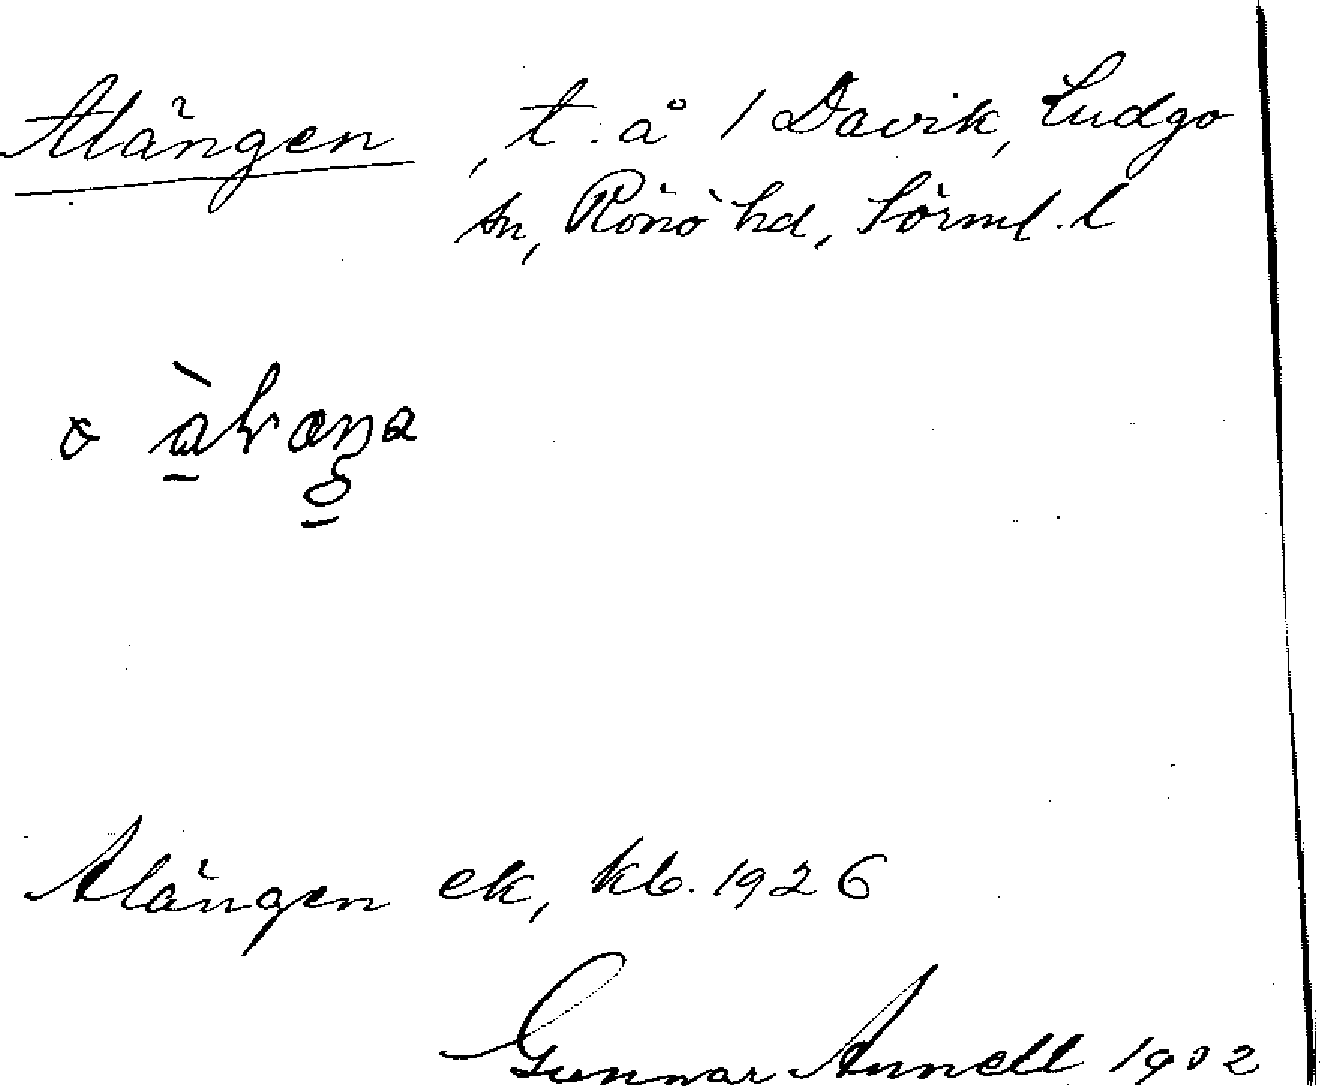 Alängen, t. å 1 Davik, Ludgo
sn, Rönö hd, Sörml. l
Alängen ek, kb. 1926
Gunnar Annell 1902